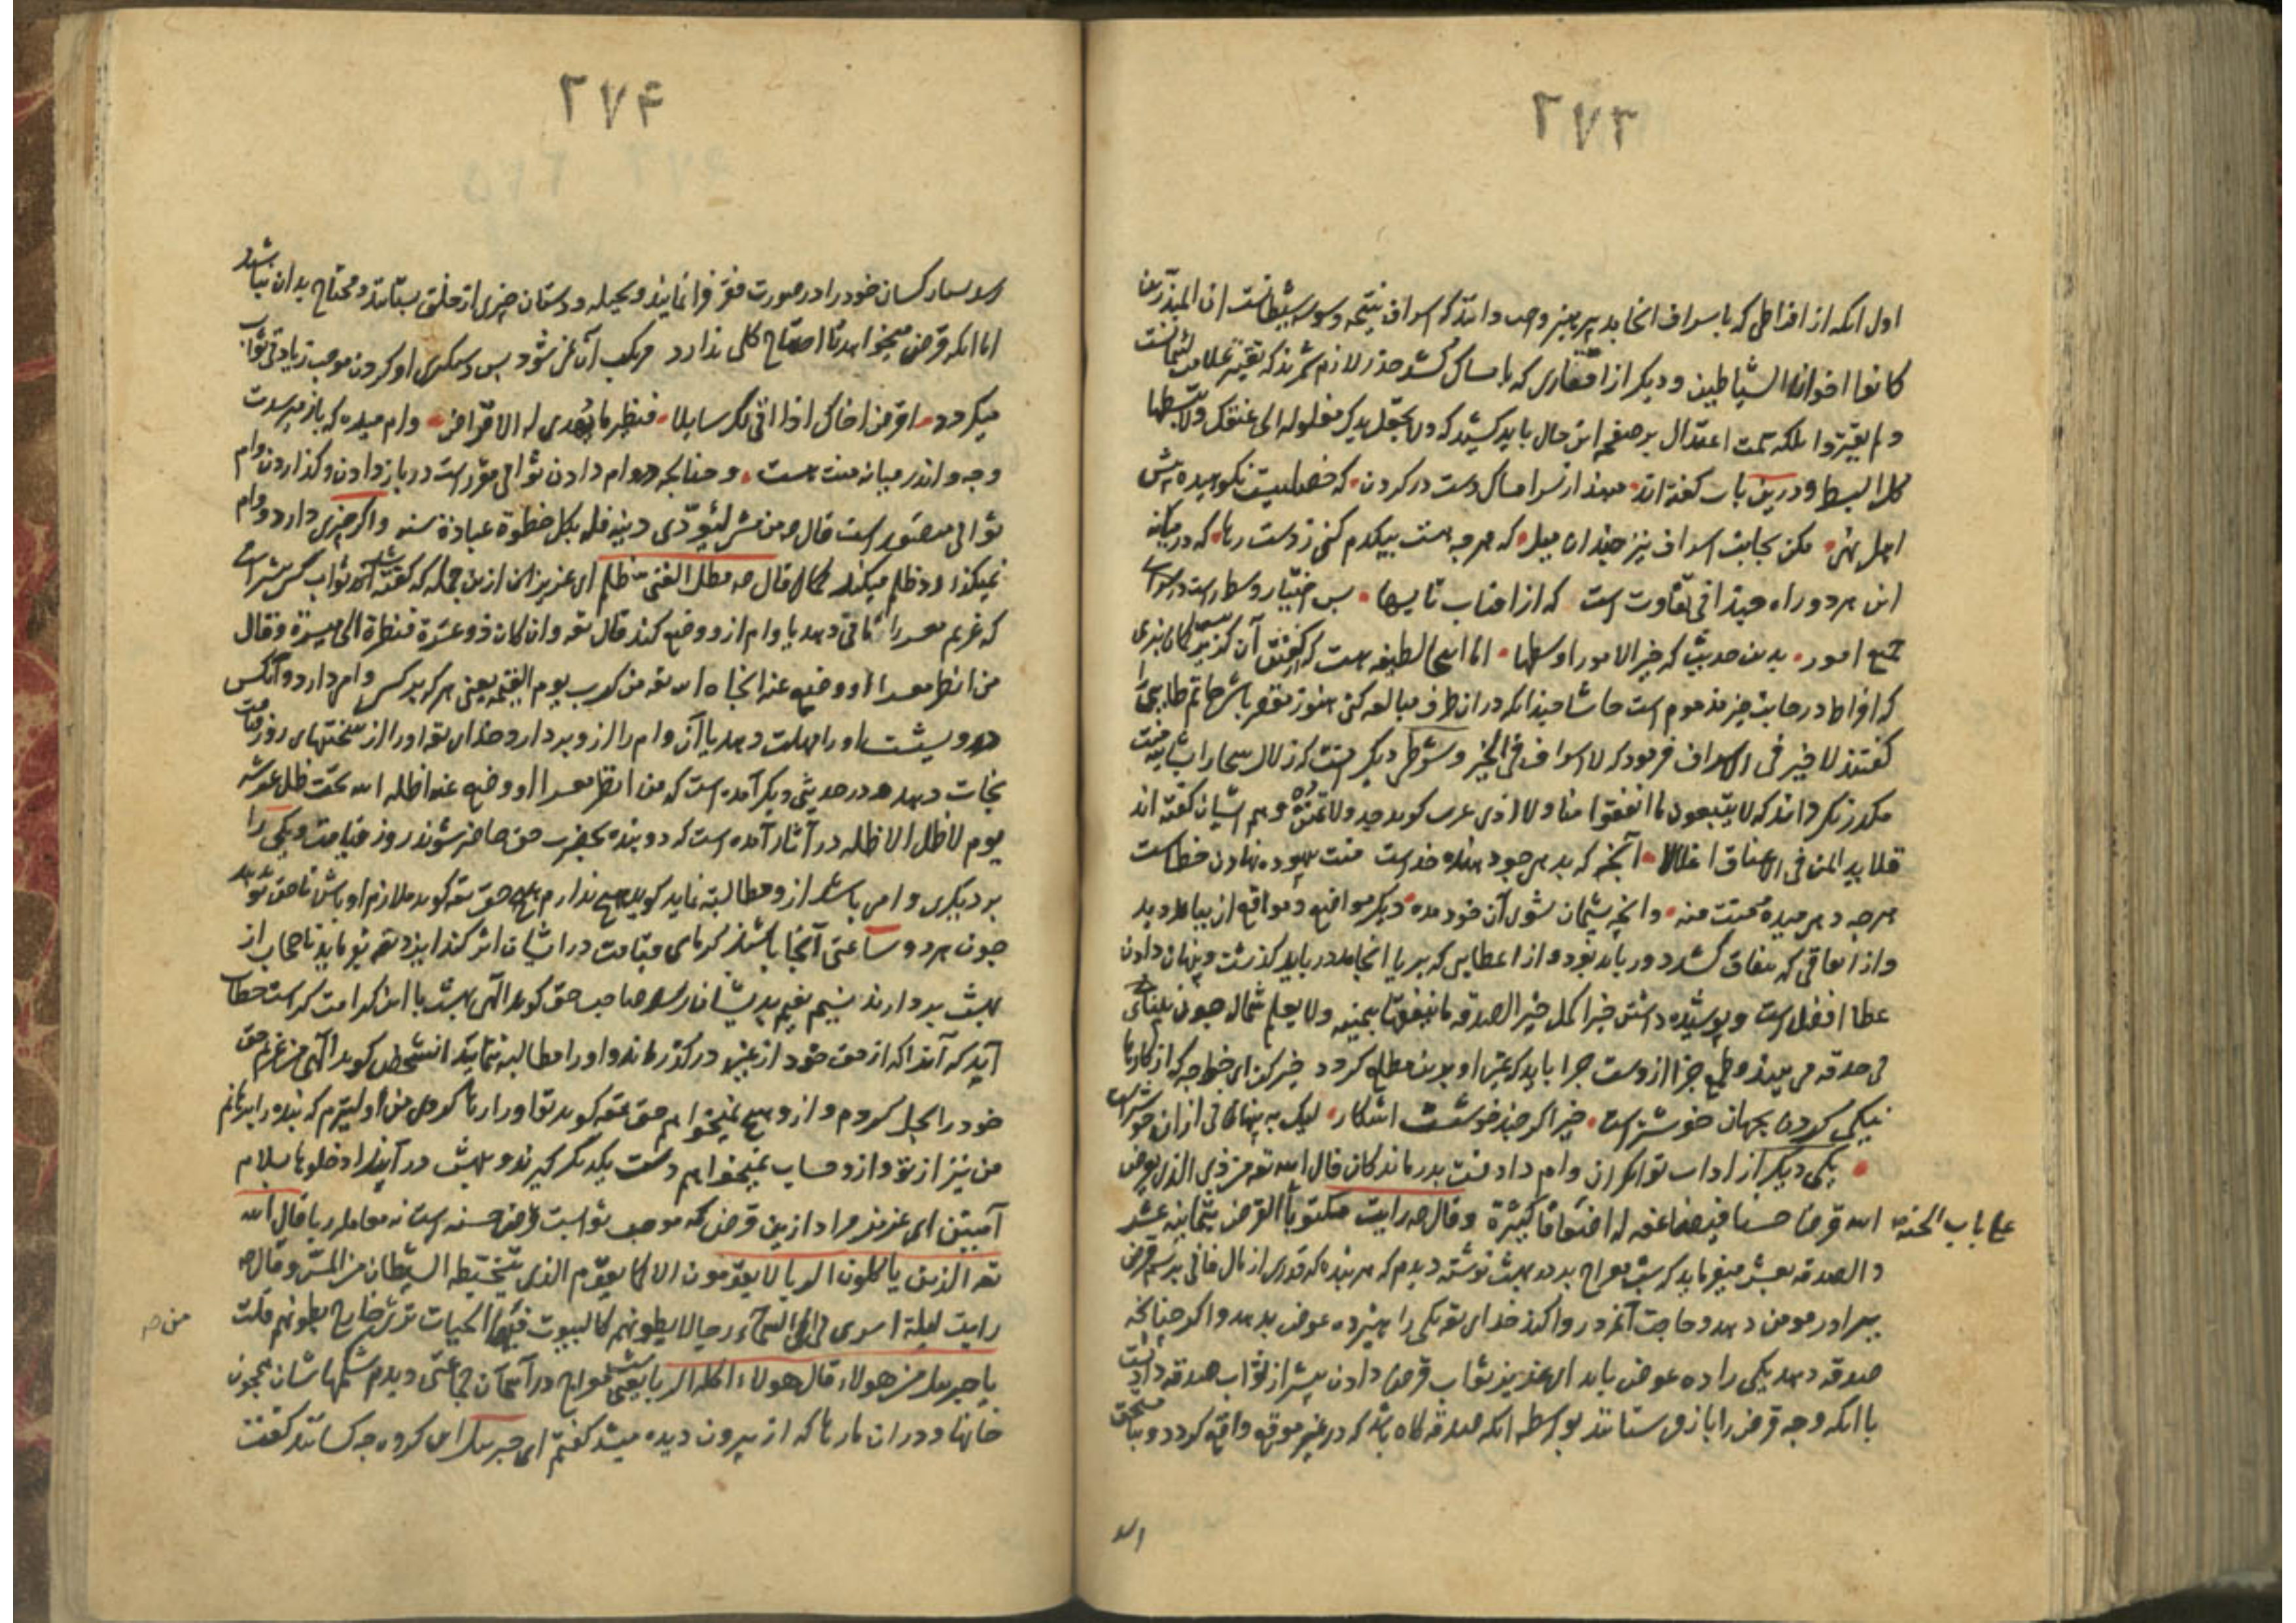 ۲۷۳
اول آنکه از افراطی که باسراف انجامد پرهیز واجب دانند که اسراف نتیجه وسوسه شیطانست ان المبذرین
کانوا اخوان الشیاطین و دیکر از اقتاری که بامساک کشد حذر لازم شمرند که تقتیر علامت
ولم یقتروا بلکه سمت اعتدال بر صفحه این حال باید کشید که ولا تجعل یدک مغلولة الی عنقک ولا تبسطها
کل البسط و درین باب کفته اند میند از سر امساک دست در کردن که خصلیست نکوهیده پیش
اهل نهی مکن بجانب اسراف نیز چندان میل که هرچه هست بیکدم کنی ز دست رها که در میانه
این هر دو راه چندانی تفاوت است که از افتاب تا بسها بس اختیار وسط راست در
جمیع امور بدین حدیث که خیر الامور اوسطها اما اینجا لطیفه هست که کفتن آن کزیر
که افراط در جانب خیر مذموم است حاشا چندانکه در ان طرف مبالغه کنی هنوز مقصر باشی حاتم طایی را
کفتند لا خیر فی الاسراف فرمود که لا اسراف فی الخیر و شرطی دیکر هست که زلال سخا را بشایبه منت
مکدر نکردانند که لا یتبعون ما انفقوا منا ولا اذی عرب کوید جد ولا تمنن و هم ایشان کفته اند
قلاید المن فی الاعناق اغلال آنچه که بدهی جود بنده خداست منت بیهوده نهادن خطاست
هرچه دهی میده و منت منه وانچه پشیمان شوی آن خود مده دیکر مواقع و مواقع از بباید دید
واز انفاقی که بنفاق کشد دور باید بود و از اعطایی که بریا انجامد در باید کذشت و پنهان دادن
عطا افضل است و پوشیده داشتن خیر اکمل خیر الصدقة ما ینفقها بیمینه ولا یعلم شماله چون بینای
صدقه می بیند و طمع جزا از وست چرا باید که غیر او بدین مطلع کردد خیر کن ای خواجه که از کارها
نیکی کردن بجهان خوشترست خیر اکر چند خوشست اشکار لیک به پنهانی از ان خوشترست
یکی دیکر از اداب توانکران وام دادنست بدرماندکان قال الله تع من ذی الذی یقرض
الله قرضا حسنا فیضاعفه له اضعافا کثیرة وقال صم رایت مکتوبا القرض بثمانیة عشر
علی باب الجنة
والصدقة بعشر میفرماید که شب معراج بر در بهشت نوشته دیدم که هر بنده که قدری از مال فانی برسم قرض
ببرادر مومن دهد و حاجت آنمرد روا کند خدای تع یکی را هیژده عوض بدهد و اکر چنانچه
صدقه دهد یکی را ده عوض یابد ای عزیز ثواب قرض دادن بیشتر از ثواب صدقه دانست
با انکه وجه قرض را باز می ستانند بواسطه انکه صدقه کاه باشد که در غیر موقع واقع کردد و بنا مستحق
۲۷۴
رسد بسیار کسان خود را در صورت فقر فرا نمایند و بحیله و دستان چیزی از خلق بستانند و محتاج بدان نباشند
اما انکه قرض میخواهد تا احتیاج کلی ندارد مرتکب آن نمی شود بس دستکیری او کردن موجب زیادتی ثواب
میکردد اقرض اخاک اذا اتی لک سایلا فنظیر ما یهدی له الاقراض وام میده که باز میرسدت
وجه و اندر میانه منت هست و چنانچه در وام دادن ثوابی مقررست در باز دادن و کذاردن وام
ثوابی متصورست قال صم من مشی لیؤدی دینه فله بکل خطوة عبادة سنه و اکر چیزی دارد و وام
نمیکذارد ظلم میکند کما قال صم مطل الغنی ظلم ای عزیز ان ازین جمله که کفته شد آن ثواب کسی بیشترست
که غریم معسر را مهلت دهد یا وام از و وضع کند قال تع وان کان ذو عسرة فنظرة الی میسرة وقال
من انظر معسرا او وضع عنه انجاه الله تع من کرب یوم القیمة یعنی هر که بر کسی وامی دارد و آنکس
درویشست او را مهلت دهد یا آن وام را از و بردارد خدای تع او را از سختیهای روز قیامت
نجات دهد و در حدیثی دیکر آمده است که من انظر معسرا او وضع عنه اظله الله تحت ظل عرشه
یوم لا ظل الا ظله در آثار آمده است که دو بنده بحضرت حق حاضر شوند روز قیامت و یکی را
بر دیکری وامی باشد از و مطالبه نماید کوید هیچ ندارم حق تع کوید ملازم او باش تا حق تو بدهد
چون هر دو ساعتی آنجا باشند کرمای قیامت در ایشان اثر کند ایزد تع بفرماید تا حجاب از
بهشت بردارند نسیم نعیم بدیشان رسد صاحب حق کوید الهی بهشت با این کرامت کراست خطاب
آید که آنرا که از حق خود از غریم در کذراند و او را مطالبه ننماید انشخص کوید الهی من غریم
خود را بحل کردم و از و هیچ نمیخواهم حق تع کوید تو او را رها کردی من اولیترم که بنده را برهانم
من نیز از تو و از و حساب نمیخواهم دست یکدیکر کیرند و بهشت در آیند ادخلوها بسلام
آمنین ای عزیز مراد ازین قرض که موجب ثوابست قرض حسنه است نه معامله ربا قال الله
تع الذین یاکلون الربا لا یقومون الا کما یقوم الذی یتخبطه الشیطان من المس وقال صم
رایت لیلة اسری بی الی السماء رجالا بطونهم کالبیوت فیها الحیات تری خارج بطونهم قلت
من صم
یا جبریل من هولاء قال هولاء اکلة الربا یعنی شب معراج در آسمان جماعتی دیدم شکمهاشان همچون
خانها و در ان مارها که از بیرون دیده میشد کفتم ای جبریل این کروه چه کسانند کفت